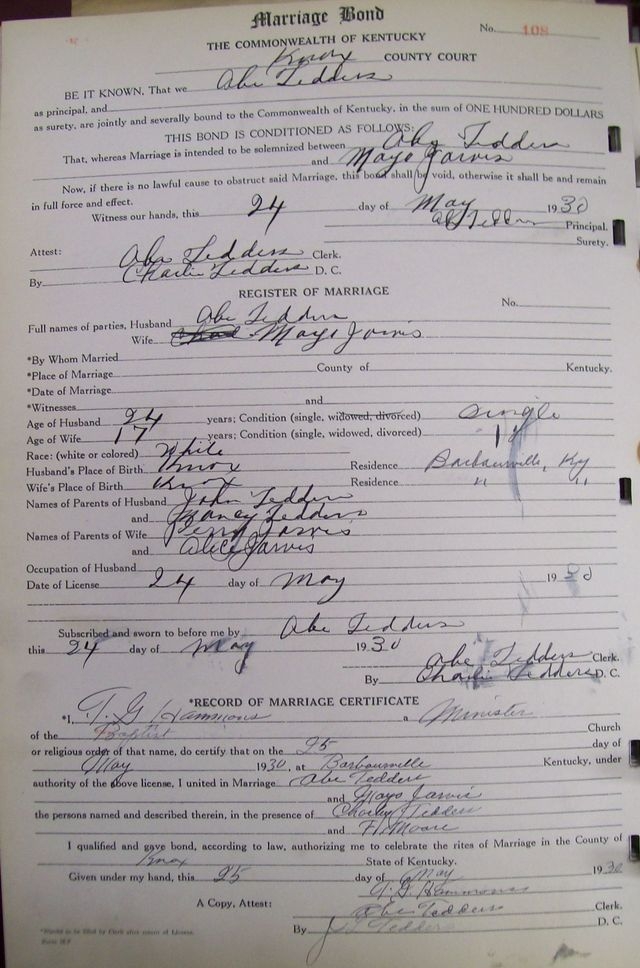 Marriage Bond
No. 108
THE COMMONWEALTH OF KENTUCKY
Knox COUNTY COURT
BE IT KNOWN, That we Abe Tedders
as principal, and
as surety, are jointly and severally bound to the Commonwealth of Kentucky, in the sum of ONE HUNDRED DOLLARS
THIS BOND IS CONDITIONED AS FOLLOWS:
That, whereas Marriage is intended to be solemnized between Abe Tedders
and Mayo Jarvis
Now, if there is no lawful cause to obstruct said Marriage, this bond shall be void, otherwise it shall be and remain
in full force and effect.
Witness our hands, this 24 day of May 1930
Abe Tedders Principal.
Surety.
Attest: Abe Tedders Clerk.
By Charlie Tedders D. C.
REGISTER OF MARRIAGE
No.
Full names of parties, Husband Abe Tedders
Wife Mayo Jarvis
*By Whom Married
*Place of Marriage County of Kentucky.
*Date of Marriage
*Witnesses and
Age of Husband 24 years; Condition (single, widowed, divorced) Single
Age of Wife 17 years; Condition (single, widowed, divorced)
Race: (white or colored) White
Husband's Place of Birth Knox Residence Barbourville, Ky
Wife's Place of Birth Knox Residence " "
Names of Parents of Husband John Tedders
and Nancy Tedders
Names of Parents of Wife Perry Jarvis
and Alice Jarvis
Occupation of Husband
Date of License 24 day of May 1930
Subscribed and sworn to before me by Abe Tedders
this 24 day of May 1930
Abe Tedders Clerk.
By Charlie Tedders D. C.
*RECORD OF MARRIAGE CERTIFICATE
*I, T. G. Hammons a Minister
of the Baptist Church
or religious order of that name, do certify that on the 25 day of
May 1930, at Barbourville Kentucky, under
authority of the above license, I united in Marriage Abe Tedders
and Mayo Jarvis
the persons named and described therein, in the presence of Charley Tedders
and Moore
I qualified and gave bond, according to law, authorizing me to celebrate the rites of Marriage in the County of
Knox State of Kentucky.
Given under my hand, this 25 day of May 1930
T. G. Hammons
A Copy, Attest: Abe Tedders Clerk.
By Tedders D. C.
*Blanks to be filled by Clerk after return of License.